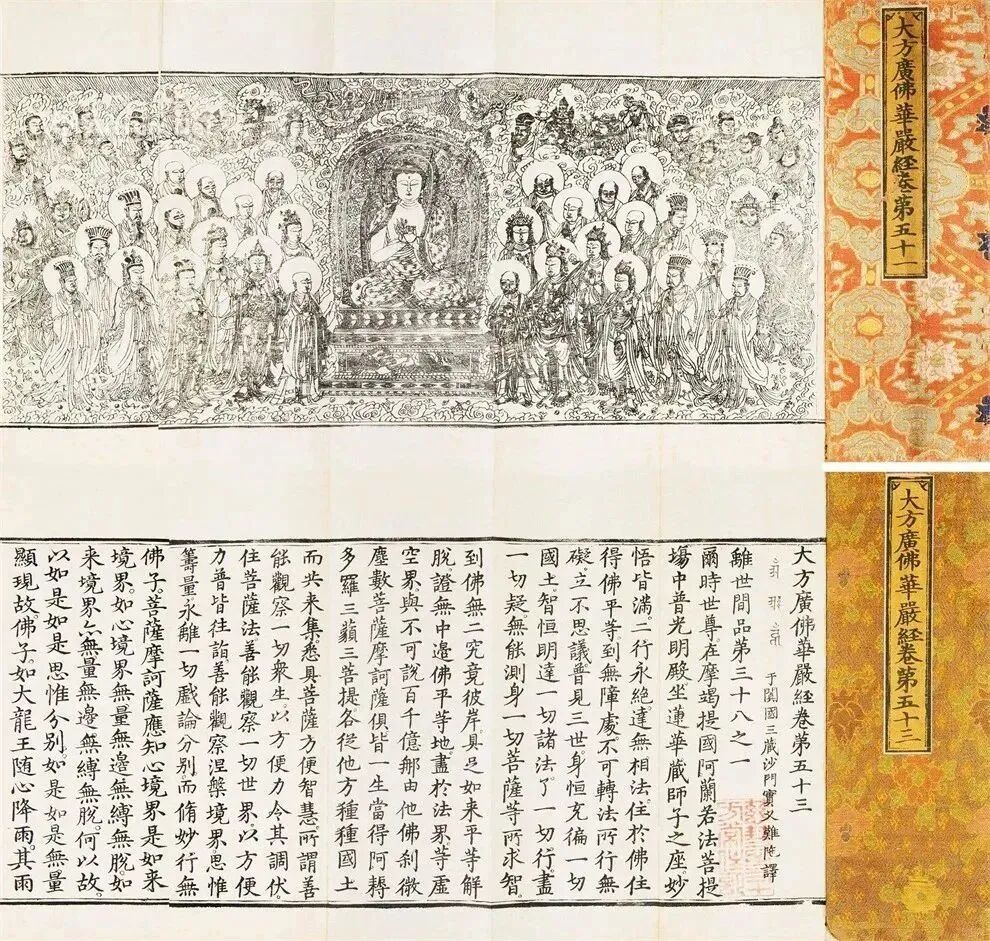 大方廣佛華嚴經卷第五十一
大方廣佛華嚴經卷第五十三
大方廣佛華嚴經卷第五十三
于闐國三藏沙門實叉難陁譯
離世間品第三十八之一
爾時世尊。在摩竭提國阿蘭若法菩提
場中普光明殿坐蓮華藏師子之座。妙
悟皆滿。二行永絶。達無相法。住於佛住
得佛平等。到無障處。不可轉法。所行無
礙。立不思議。普見三世。身恒充徧一切
國土。智恒明達一切諸法。了一切行。盡
一切疑。無能測身。一切菩薩等所求智。
到佛無二究竟彼岸。具足如來平等解
脫。證無中邊佛平等地。盡於法界。等虛
空界。與不可說百千億那由他佛刹微
塵數菩薩摩訶薩俱。皆一生當得阿耨
多羅三藐三菩提。各從他方種種國土
而共来集。悉具菩薩方便智慧。所謂善
能觀察一切衆生。以方便力。令其調伏。
住菩薩法。善能觀察一切世界。以方便
力。普皆往詣。善能觀察涅槃境界。思惟
籌量。永離一切戲論分別。而脩妙行無
佛子。菩薩摩訶薩應知心境界是如来
境界。如心境界無量無邊無縛無脫。如
来境界亦無量無邊無縛無脫。何以故。
以如是如是思惟分別。如是如是無量
顯現故。佛子。如大龍王随心降雨。其雨